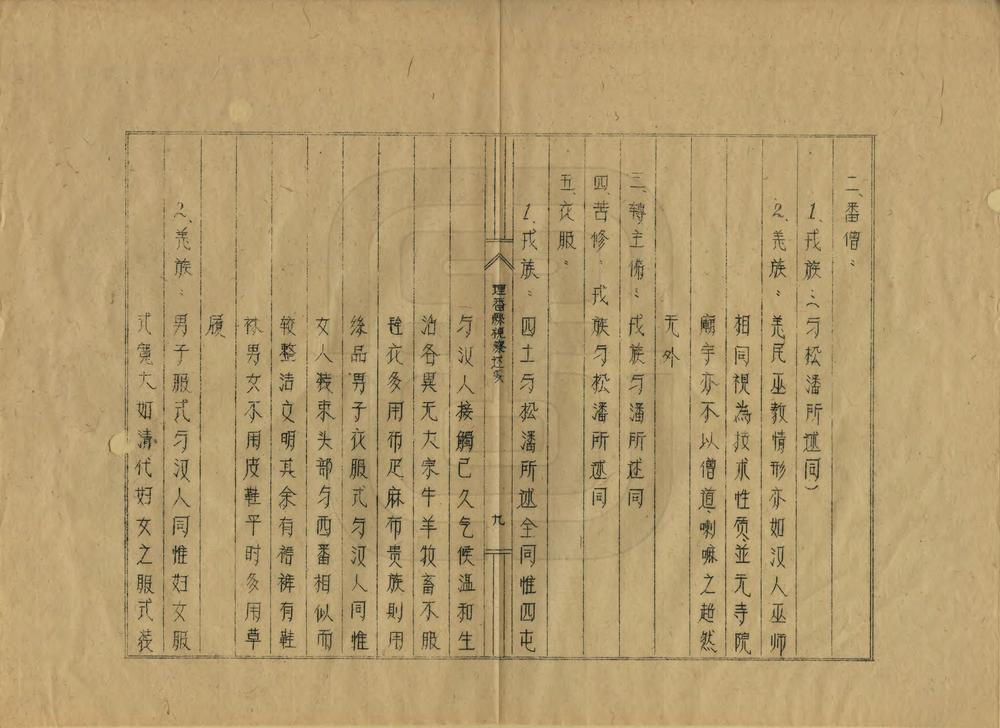 二、番僧：
1、戎族：（与松潘所述同）
2、羌族：羌民巫教情形亦如汉人巫师
相同視為技术性质、並无寺院
廟宇亦不以僧道、喇嘛之超然
无外
三、轉主術：戎族与潘所述同
四、苦修：戎族与松潘所述同
五、衣服：
1、戎族：四土与松潘所述全同惟四屯
理番縣視察述实
九
与汉人接觸已久气候温和生
活各異无大宗牛羊牧畜不服
毪衣多用布疋麻布贵族則用
絲品男子衣服式与汉人同惟
女人装束头部与西番相似而
较整洁文明其余有褶裤有鞋
袜男女不用皮鞋平时多用草
履
2、羌族：男子服式与汉人同惟妇女服
式寬大如清代妇女之服式装